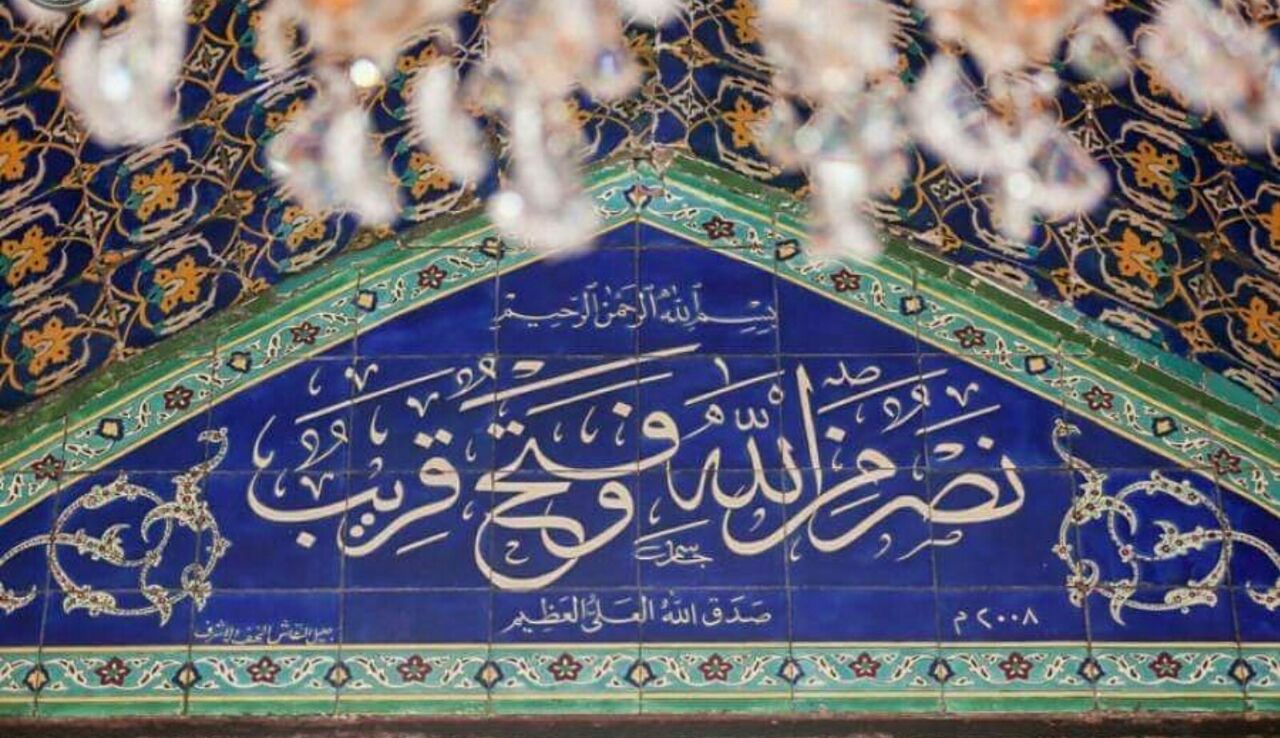 بِسْمِ ٱللَّهِ ٱلرَّحْمَٰنِ ٱلرَّحِيمِ
نَصْرٌ مِنَ اللّٰهِ وَفَتْحٌ قَرِيبٌ
جاسم
صَدَقَ اللّٰهُ العَلِيُّ العَظِيمُ
٢٠٠٨ م
النقاش النجف الاشرف